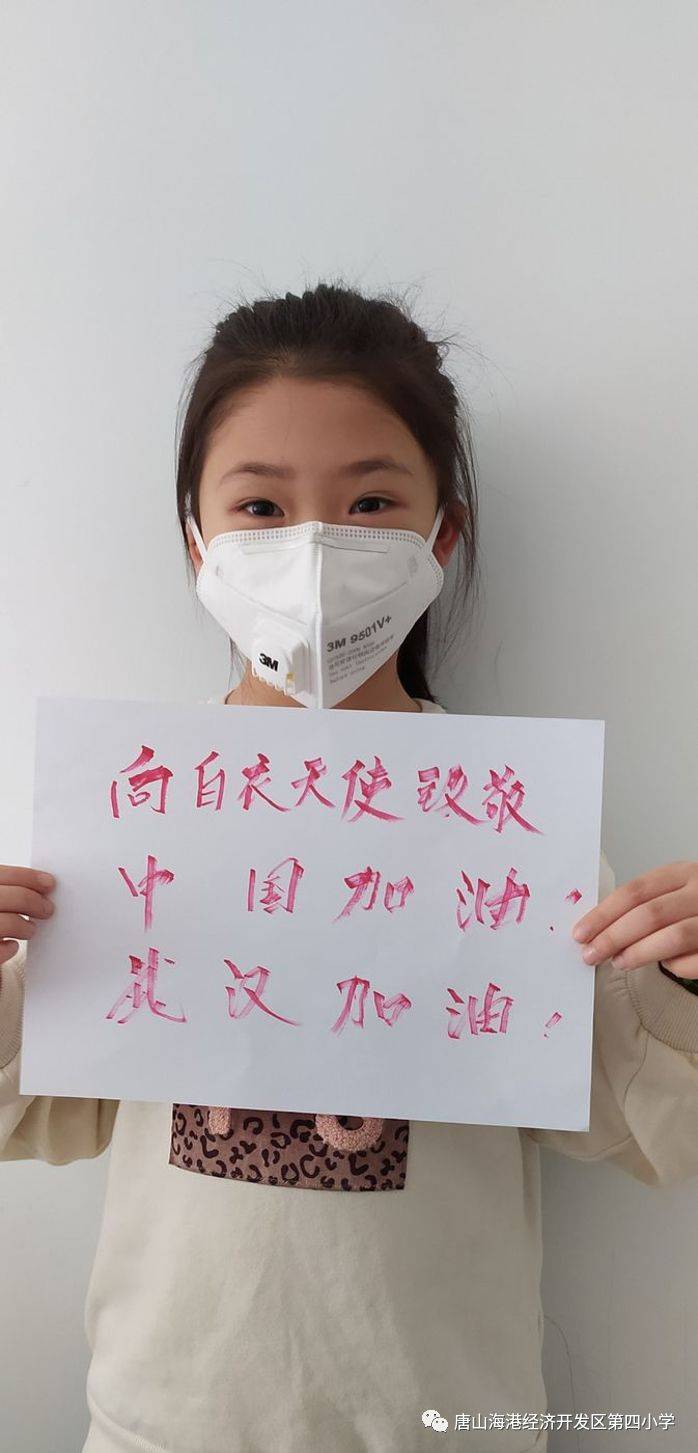 3M 9501V+
3M
向白衣天使致敬
中国加油!
武汉加油!
唐山海港经济开发区第四小学